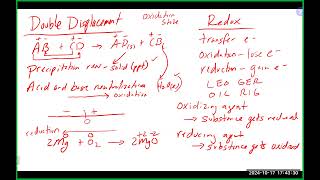 Double Displacement
oxidation
state
+ - + - + - + -
AB + CD → AD(s) + CB
Precipitation rxn - solid (ppt)
Acid and base neutralization H2O(l)
→ oxidation
- | 0 | +
reduction ←
0 0 +2 -2
2Mg + O2 → 2MgO
Redox
transfer e-
oxidation - lose e-
reduction - gain e-
LEO GER
OIL RIG
oxidizing agent
→ substance gets reduced
reducing agent
→ substance gets oxidized
2024-10-17 17:40:30